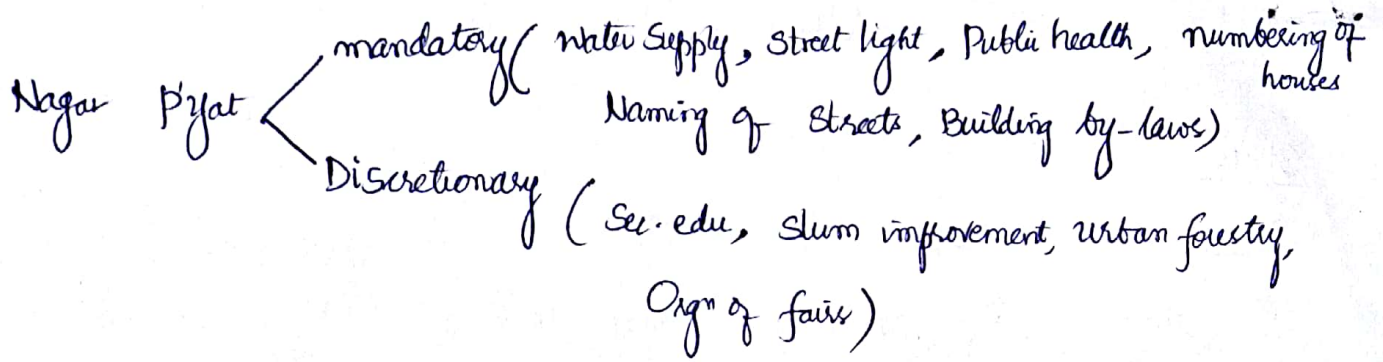 mandatory ( Water Supply, Street light, Public health, numbering of houses
Nagar P'yat
Naming of Streets, Building by-laws)
Discretionary ( Sec. edu, Slum improvement, urban forestry,
Orgn of fairs)